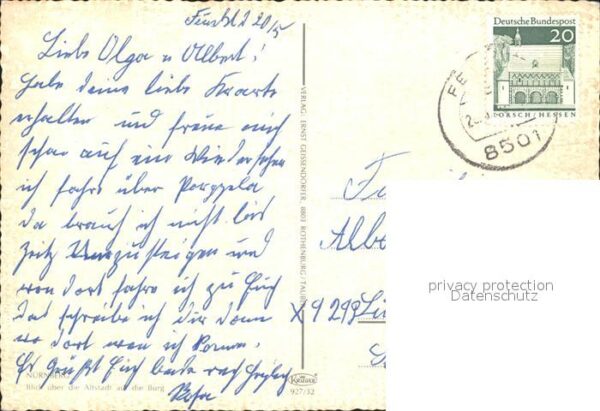 20/5
Liebe Olga u Albert!
habe deine liebe Kaarte
erhalten und freue mich
schon auf ein Wiedersehen
ich fahre über
da brauch ich nicht bis
Zeitz Umzusteigen und
von dort fahre ich zu Euch
das schreibe ich dir dann
wo dort wan ich komme.
Es Grüßt Euch beide recht herzlich
Rosa
NÜRNBERG
Blick über die Altstadt auf die Burg
VERLAG: ERNST GEISSENDÖRFER, 8803 ROTHENBURG/TAUBER
Krüger
927/32
Deutsche Bundespost
20
LORSCH/HESSEN
8501
privacy protection
Datenschutz